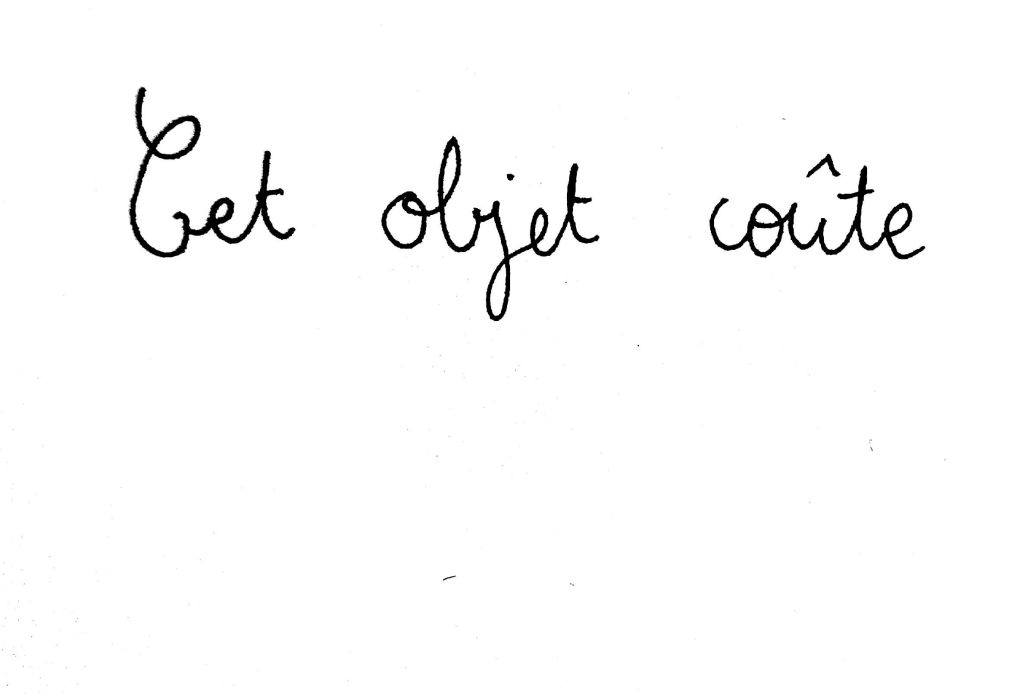 Cet objet coûte